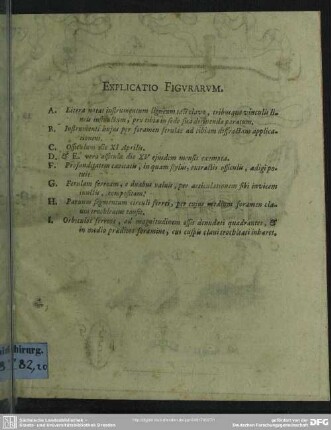 EXPLICATIO FIGVRARVM.
A. Litera notat instrumentum ligneum cum clavo, tribusque vinculis
instructum, pro tibia in sede sua detinenda paratum.
B. Instrumenti hujus per foramen ferulae ad tibiam diffractam applica-
tionem.
C. Ossiculum die XI Aprilis.
D. & E. vero ossicula die XV ejusdem mensis exemta.
F. Profunditatem cavitatis, in quam stylus, extractis ossiculis, adigi po-
tuit.
G. Ferulam ferream, e duabus valvis, per articulationem sibi invicem
junctis, compositam.
H. Patulum segmentum circuli ferrei, per cujus medium foramen cla-
vus trochleatus transit.
I. Orbiculus ferreus, ad magnitudinem ossis denudati quadrantem, &
in medio praeditus foramine, cui cuspis clavi trochleati inhaeret.
chirurg.
82,20
Sächsische Landesbibliothek -
Staats- und Universitätsbibliothek Dresden
gefördert von der
Deutschen Forschungsgemeinschaft
DFG